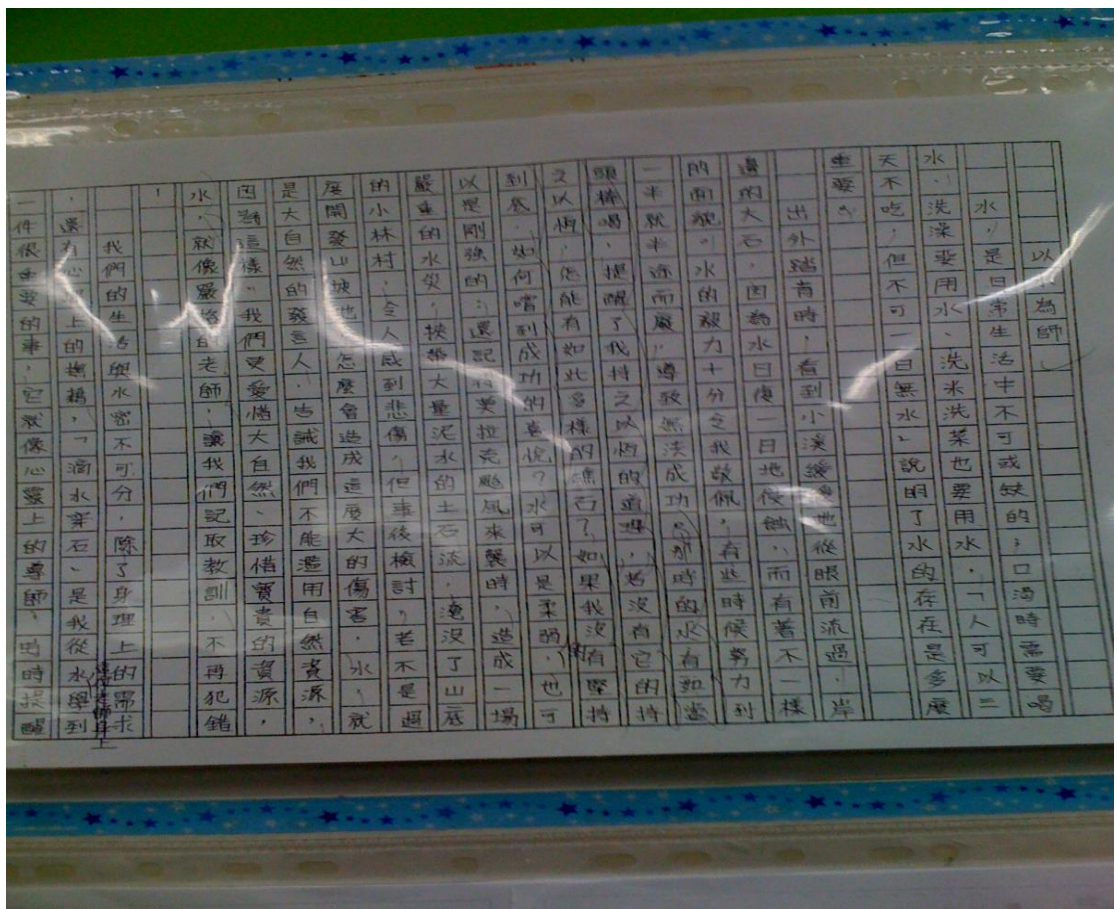 以為師
水，是日常生活中不可或缺的，口渴時需要喝
水、洗澡要用水、洗米洗菜也要用水，「人可以三
天不吃，但不可一日無水」說明了水的存在是多麼
重要。
出外踏青時，看到小溪緩緩地從眼前流過，岸
邊的大石，因為水日復一日地侵蝕，而有著不一樣
的面貌。水的毅力十分令我敬佩，有些時候努力到
一半就半途而廢，導致無法成功。那時的水有如當
頭棒喝，提醒了我持之以恆的道理，若沒有它的持
之以恆，怎能有如此多樣的礁石？如果我沒有堅持
到底，如何嚐到成功的喜悅？水可以是柔弱的，也可
以是剛強的：還記得莫拉克颱風來襲時，造成一場
嚴重的水災，挾帶大量泥水的土石流，淹沒了山底
的小林村，令人感到悲傷。但事後檢討，若不是過
度開發山坡地，怎麼會造成這麼大的傷害，水，就
是大自然的發言人，告誡我們不能濫用自然資源，
因為這樣，我們要愛惜大自然、珍惜寶貴的資源，
水，就像嚴格的老師，讓我們記取教訓，不再犯錯
！
我們的生活與水密不可分，除了身理上的需求
，還有心上的，「滴水穿石」是我從水這位老師身上學到
一件很重要的事，它就像心靈上的導師，時時提醒